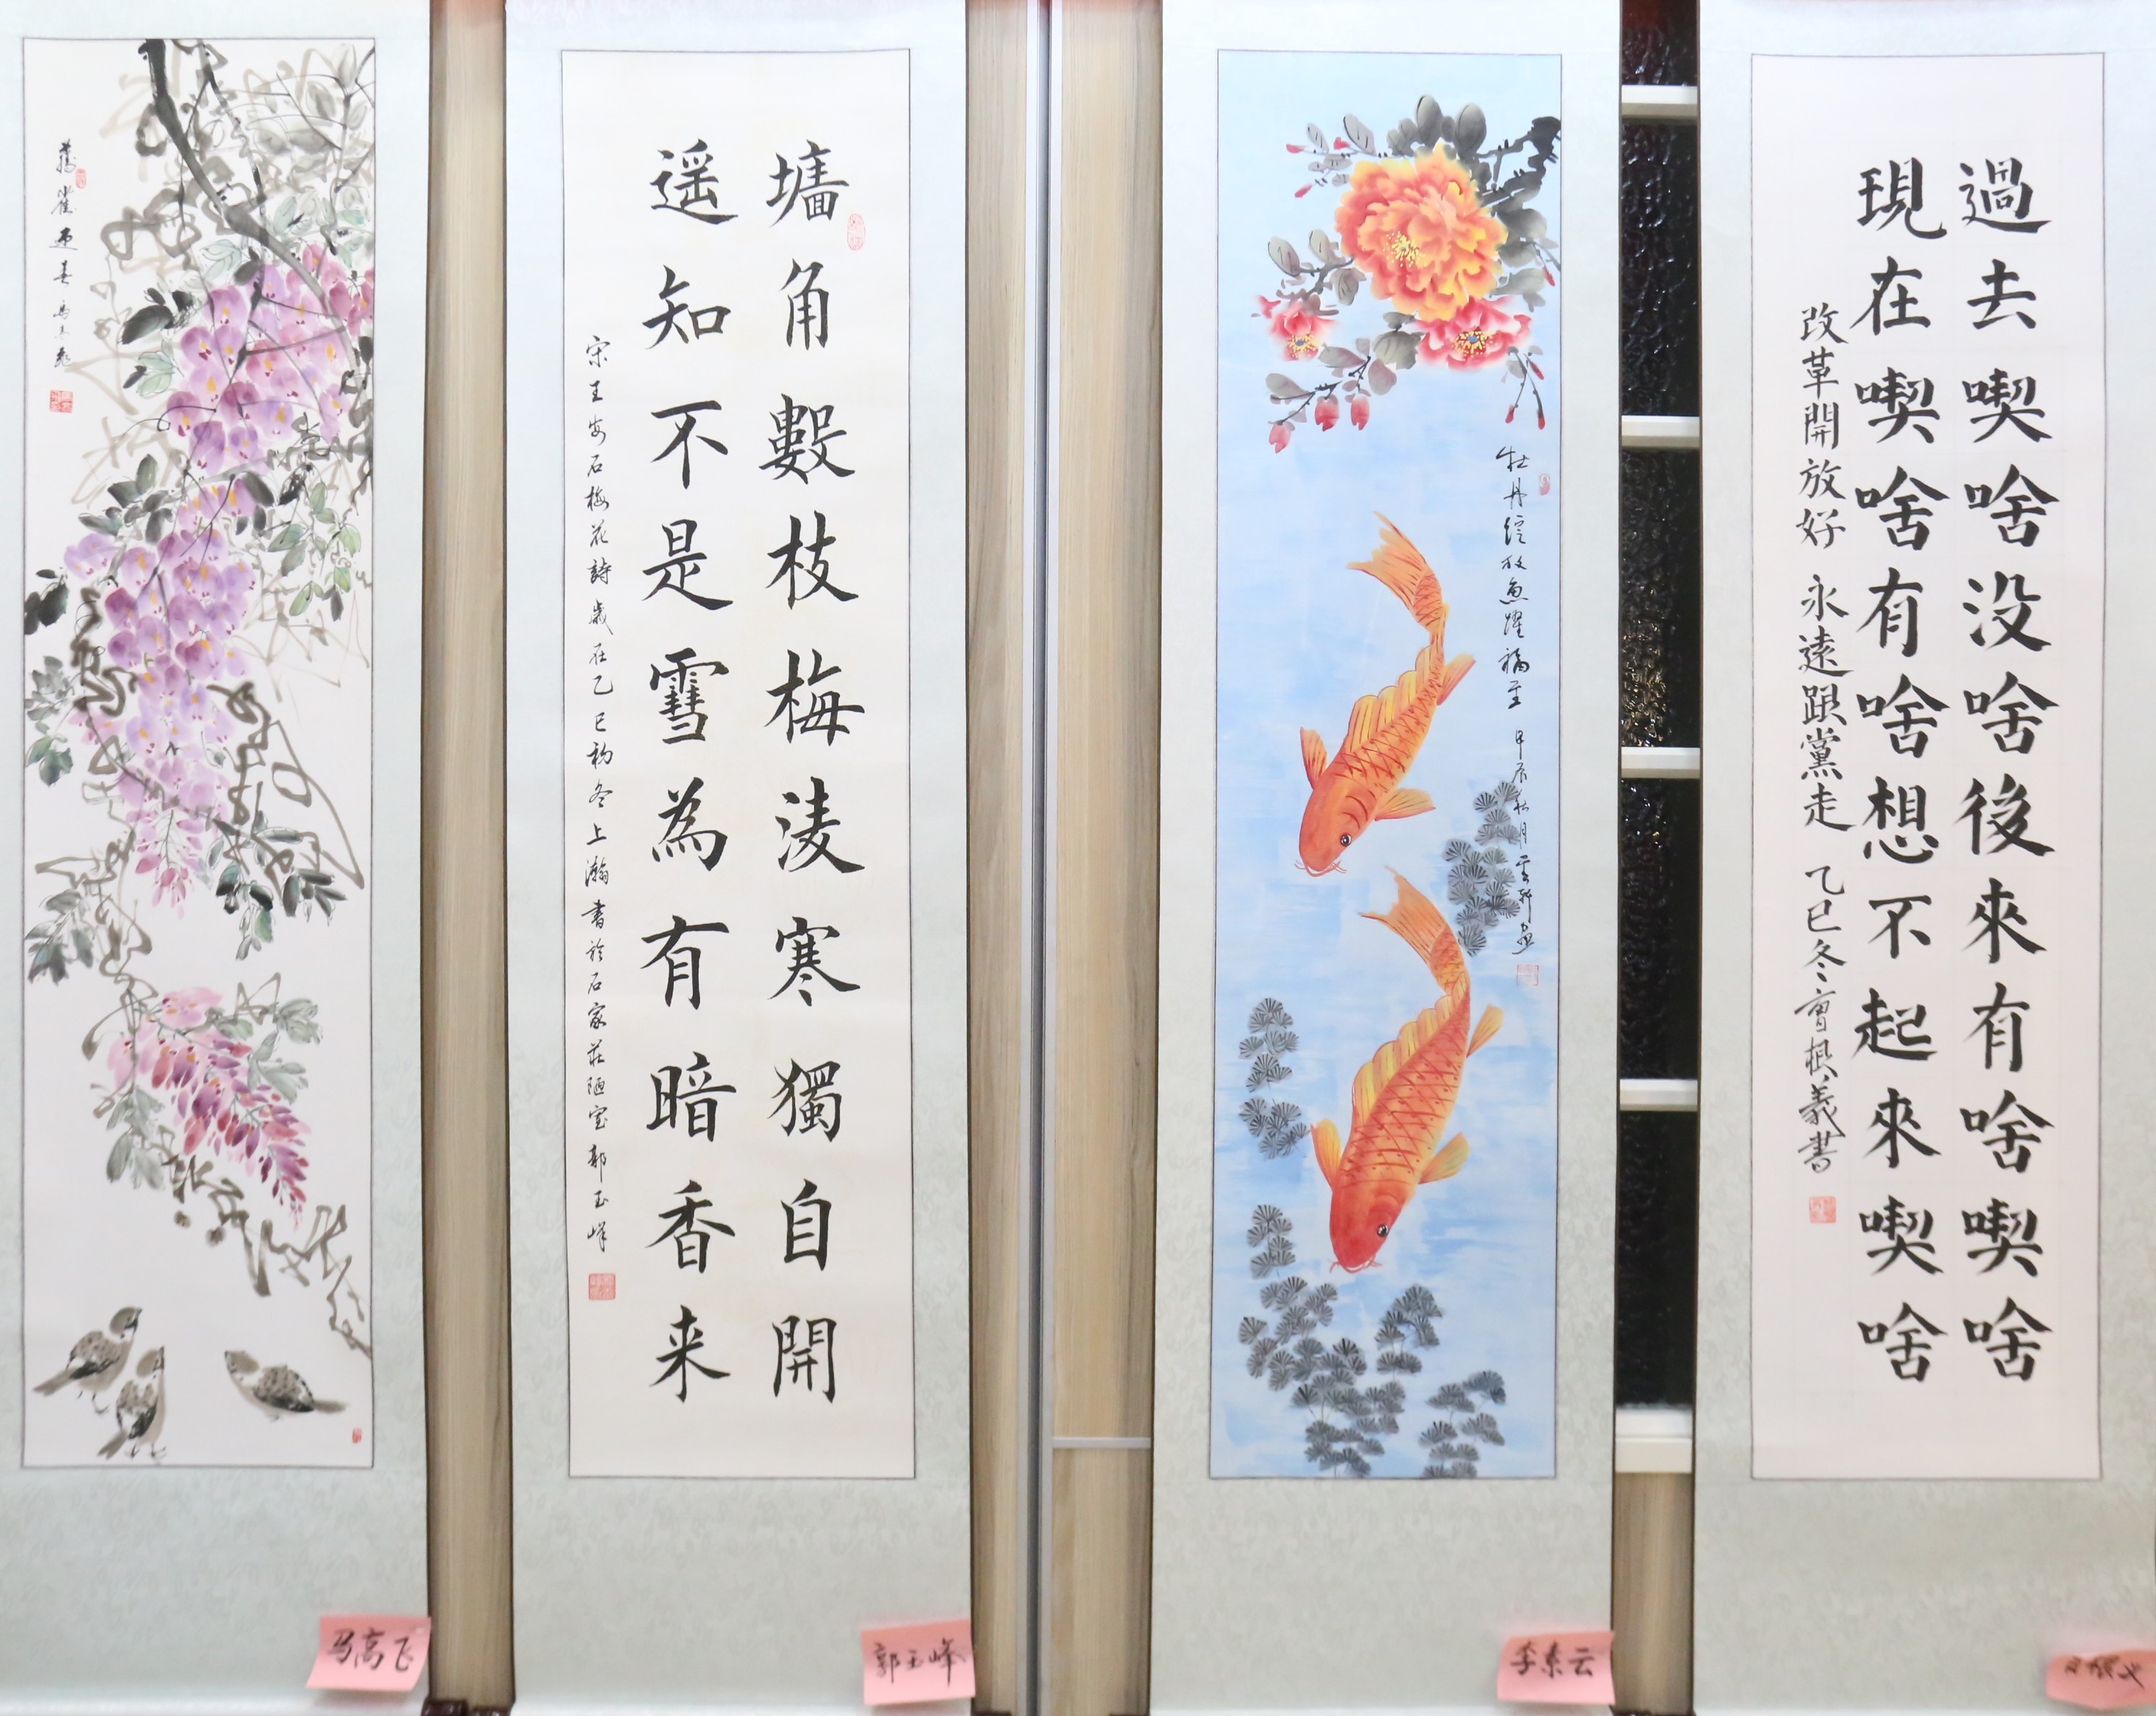 藤雀迎春馬高飛
马高飞
墻角數枝梅淩寒獨自開
遥知不是雪為有暗香来
宋王安石梅花詩歲在乙巳初冬上瀚書於石家莊陋室郭玉峰
郭玉峰
牡丹綻放魚躍福至 甲辰秋月雲軒画
李素云
過去喫啥没啥後來有啥喫啥
現在喫啥有啥想不起來喫啥
改革開放好 永遠跟黨走 乙巳冬曹根義書